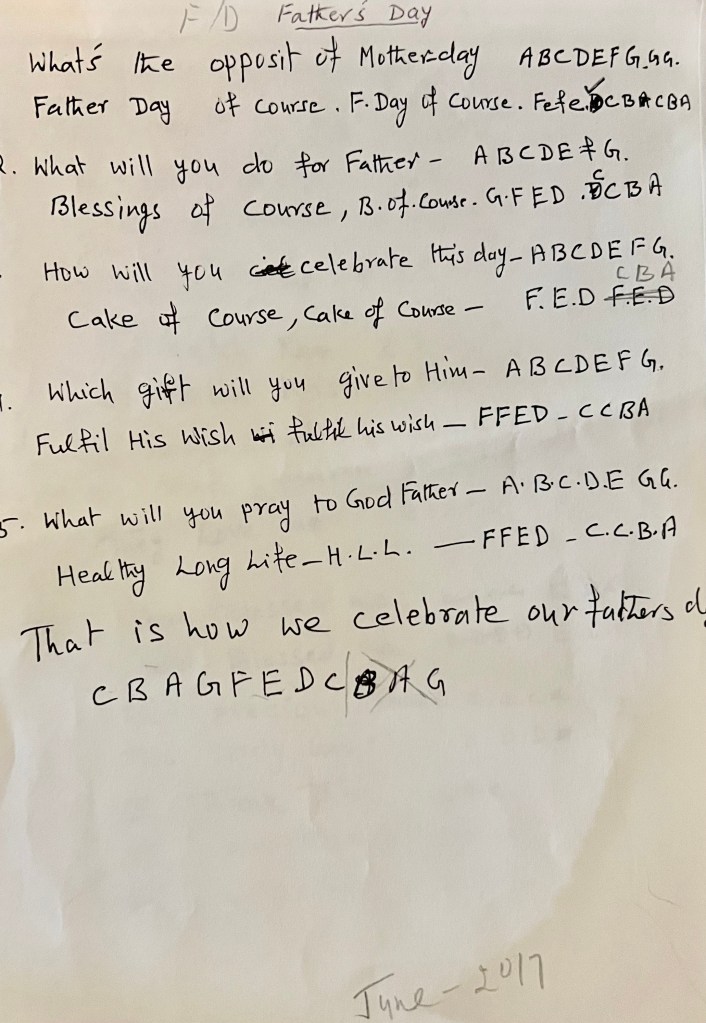 F/D Father's Day
What's the opposit of Mother-day ABCDEFG.GG.
Father Day of course. F. Day of Course. Fefe.DCBACBA
2. What will you do for Father - ABCDEFG.
Blessings of course, B.of.Course. G.FED .CCBA
How will you celebrate this day - ABCDEFG.
CBA
Cake of Course, Cake of Course - F.E.D F.E.D
Which gift will you give to Him - ABCDEFG.
Fulfil His Wish fulfil his wish - FFED - CCBA
5. What will you pray to God Father - A.B.C.D.E GG.
Healthy Long Life - H.L.L. - FFED - C.C.B.A
That is how we celebrate our fathers d
CBAGFEDC B A G
June - 2017